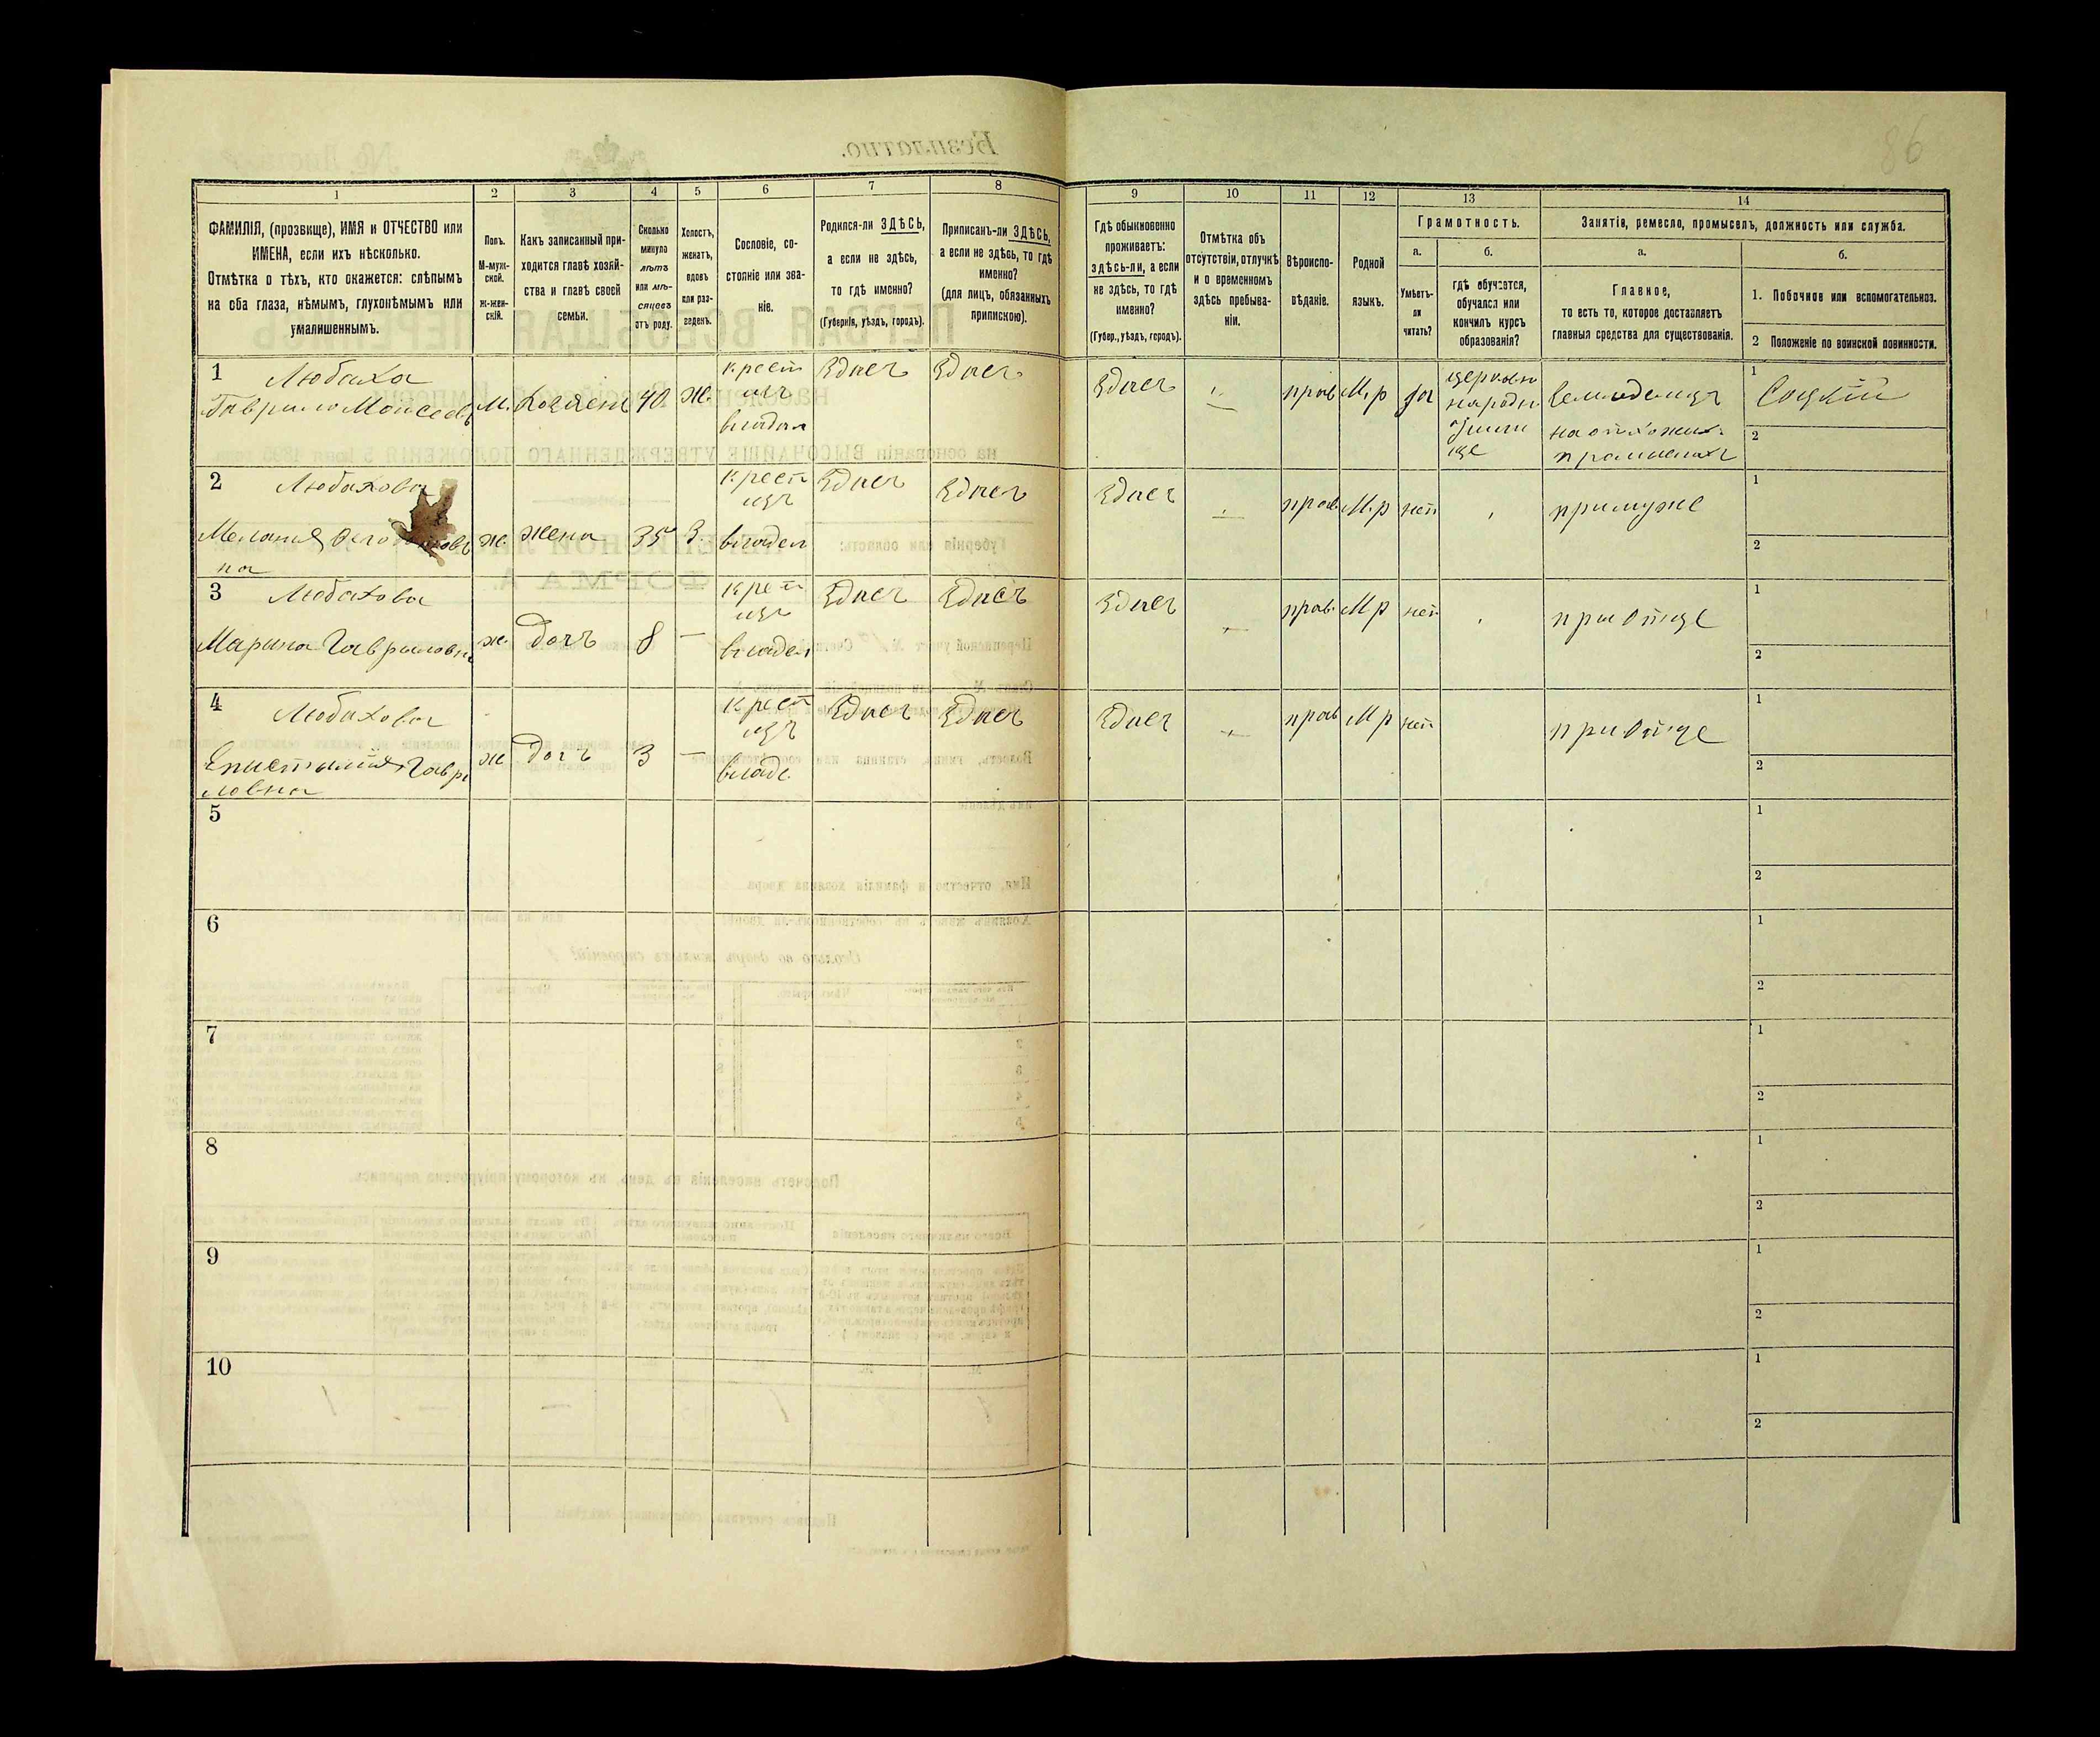 86
1 2 3 4 5 6 7 8 9 10 11 12 13 14
ФАМИЛІЯ, (прозвище), ИМЯ и ОТЧЕСТВО или
ИМЕНА, если ихъ нѣсколько.
Отмѣтка о тѣхъ, кто окажется: слѣпымъ
на оба глаза, нѣмымъ, глухонѣмымъ или
умалишеннымъ.
Полъ.
М-муж-
ской.
Ж-жен-
скій.
Какъ записанный при-
ходится главѣ хозяй-
ства и главѣ своей
семьи.
Сколько
минуло
лѣтъ
или мѣ-
сяцевъ
отъ роду.
Холостъ,
женатъ,
вдовъ
или раз-
веденъ.
Сословіе, со-
стояніе или зва-
ніе.
Родился-ли ЗДѢСЬ,
а если не здѣсь,
то гдѣ именно?
(Губернія, уѣздъ, городъ).
Приписанъ-ли ЗДѢСЬ,
а если не здѣсь, то гдѣ
именно?
(для лицъ, обязанныхъ
припискою).
Гдѣ обыкновенно
проживаетъ:
здѣсь-ли, а если
не здѣсь, то гдѣ
именно?
(Губер., уѣздъ, городъ).
Отмѣтка объ
отсутствіи, отлучкѣ
и о временномъ
здѣсь пребыва-
ніи.
Вѣроиспо-
вѣданіе.
Родной
языкъ.
Грамотность.
а.
Умѣетъ-
ли
читать?
б.
гдѣ обучается,
обучался или
кончилъ курсъ
образованія?
Занятія, ремесло, промыселъ, должность или служба.
а.
Главное,
то есть то, которое доставляетъ
главныя средства для существованія.
б.
1. Побочное или вспомогательное.
2 Положеніе по воинской повинности.
1 Любаха
Гаврило Моисеев
М.
Хозяен
40
Ж.
крест
изъ
владел
Здись
Здись
Здись
прав
М.р
да
церковн
народн
училищ
ще
Земледелец
на отхожих
промислах
1 Соцкій
2
2 Любахова
Мелания
на
ж.
жена
35
З.
крест
изъ
владел
Здись
Здись
Здись
прав
М.р
нет
при муже
1
2
3 Любахова
Марина Гавриловна
ж
доч
8
—
крет
изъ
владел
Здись
Здись
Здись
прав.
М р
нет
при отце
1
2
4 Любахова
Епистимия Гаври
ловна
ж
доч
3
—
крест
изъ
владе
Здись
Здись
Здись
прав
М р
нет
при отце
1
2
5
1
2
6
1
2
7
1
2
8
1
2
9
1
2
10
1
2